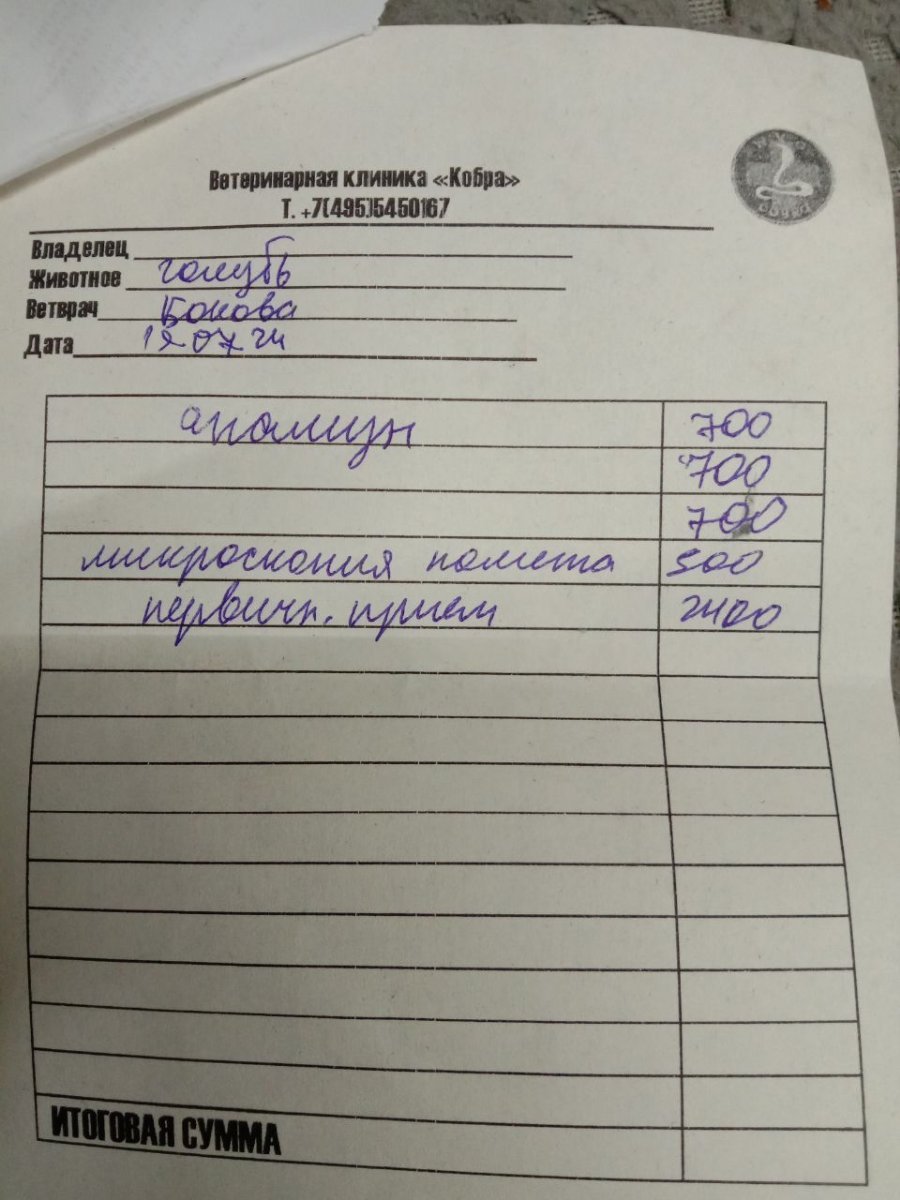 Ветеринарная клиника «Кобра»
Т. +7(495)5450167
Владелец
Животное голубь
Ветврач Бокова
Дата 19 07 24
апомизн 700
700
700
микроскопия помета 500
первичн. прием 2400
ИТОГОВАЯ СУММА